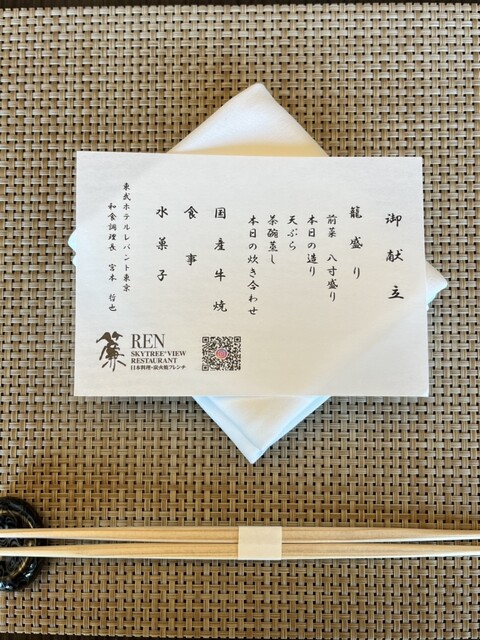 御献立
籠盛り
前菜 八寸盛り
本日の造り
天ぷら
茶碗蒸し
本日の炊き合わせ
国産牛焼
食事
水菓子
東武ホテルレバント東京
和食調理長 宮本 行也
簾
REN
SKYTREE® VIEW
RESTAURANT
日本料理・炭火焼フレンチ